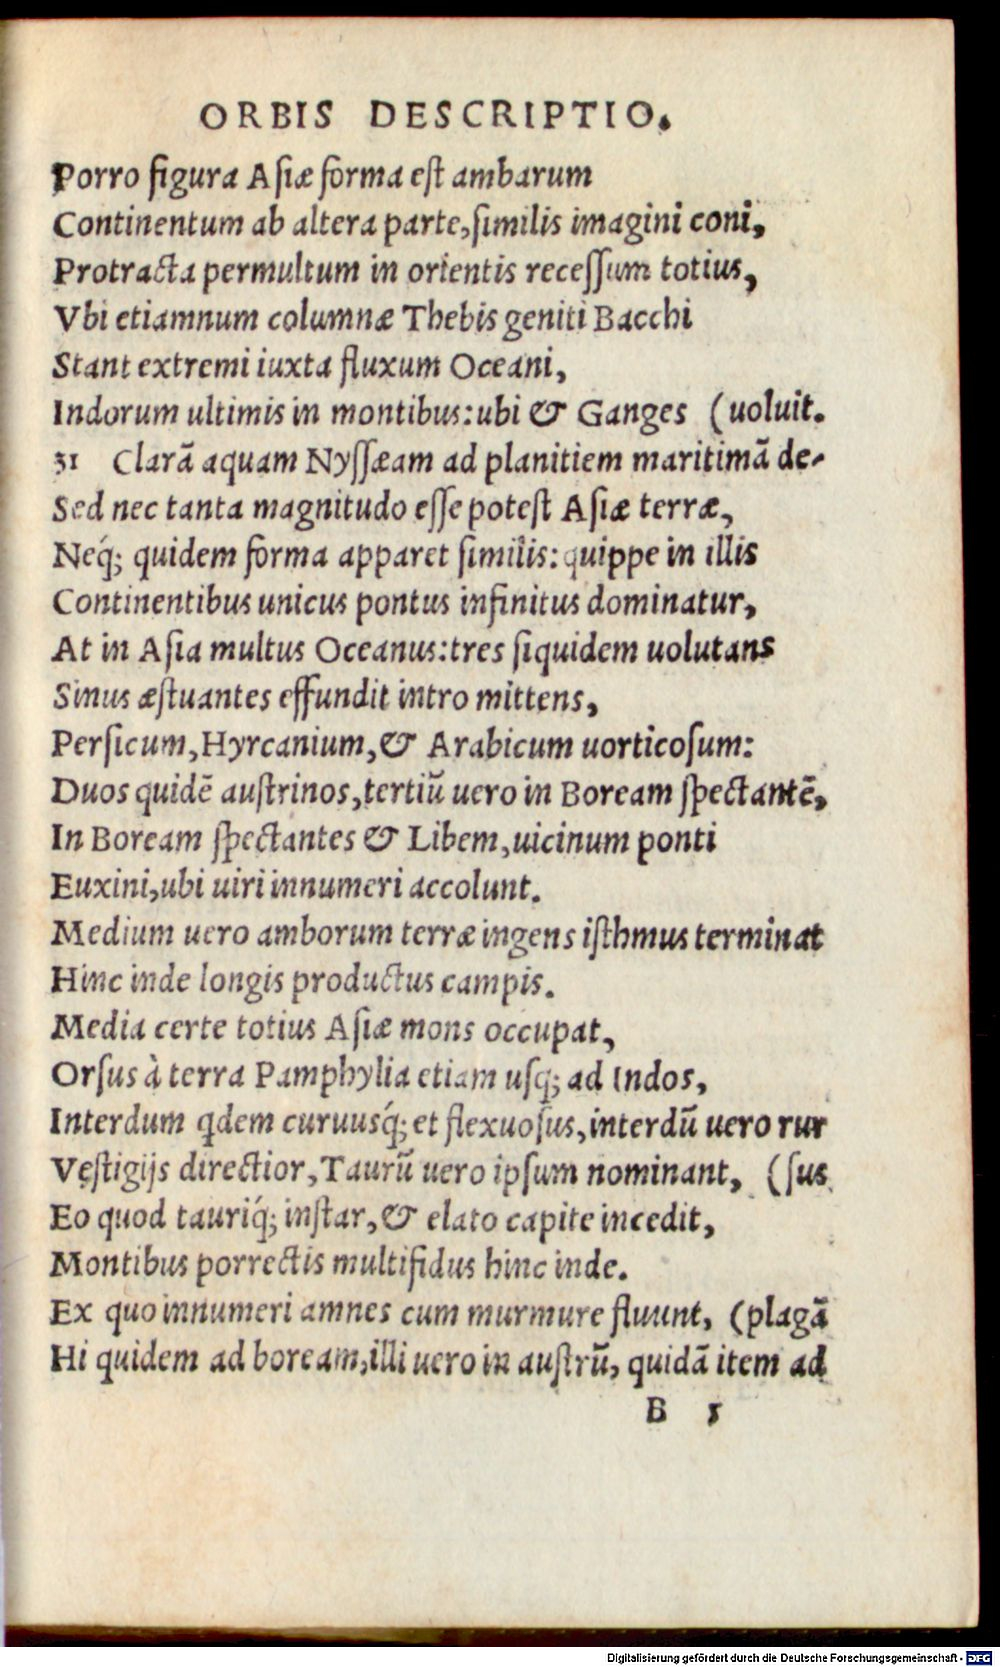 ORBIS DESCRIPTIO.
Porro figura Asiæ forma est ambarum
Continentum ab altera parte, similis imagini coni,
Protracta permultum in orientis recessum totius,
Vbi etiamnum columnæ Thebis geniti Bacchi
Stant extremi iuxta fluxum Oceani,
Indorum ultimis in montibus: ubi & Ganges (uoluit.
31 Clarā aquam Nyssæam ad planitiem maritimā de-
Sed nec tanta magnitudo esse potest Asiæ terræ,
Neq́; quidem forma apparet similis: quippe in illis
Continentibus unicus pontus infinitus dominatur,
At in Asia multus Oceanus: tres siquidem uolutans
Sinus æstuantes effundit intro mittens,
Persicum, Hyrcanium, & Arabicum uorticosum:
Duos quidē austrinos, tertiū uero in Boream spectantē,
In Boream spectantes & Libem, uicinum ponti
Euxini, ubi uiri innumeri accolunt.
Medium uero amborum terræ ingens isthmus terminat
Hinc inde longis productus campis.
Media certe totius Asiæ mons occupat,
Orsus à terra Pamphylia etiam usq; ad Indos,
Interdum qdem curuusq́; et flexuosus, interdū uero rur
Vestigijs directior, Taurū uero ipsum nominant, (sus
Eo quod tauriq́; instar, & elato capite incedit,
Montibus porrectis multifidus hinc inde.
Ex quo innumeri amnes cum murmure fluunt, (plagā
Hi quidem ad boream, illi uero in austrū, quidā item ad
B 5
Digitalisierung gefördert durch die Deutsche Forschungsgemeinschaft - DFG